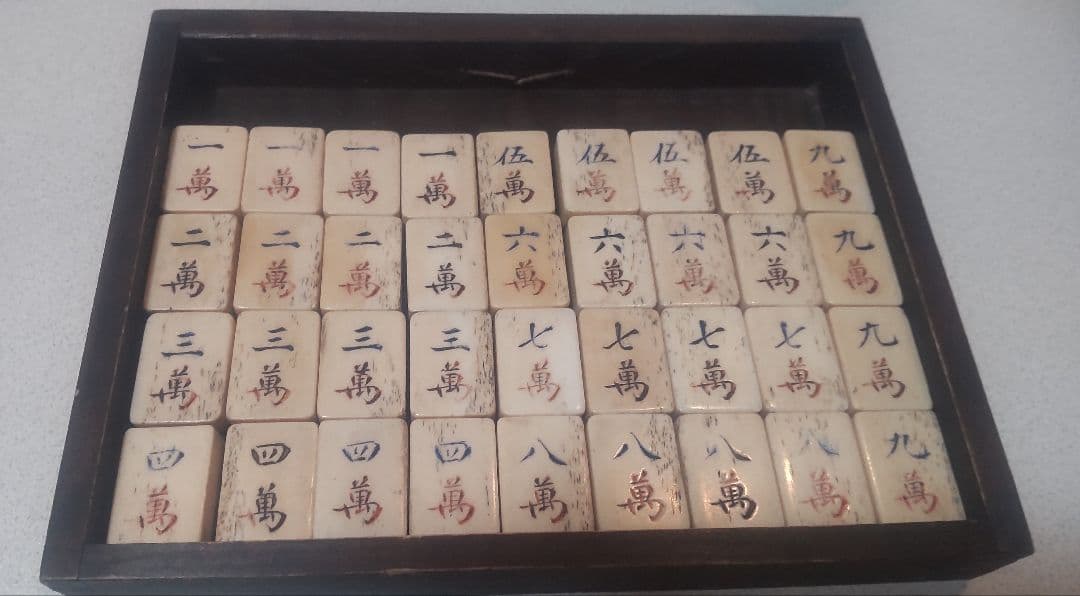 一 一 一 一 伍 伍 伍 伍 九
萬 萬 萬 萬 萬 萬 萬 萬 萬
二 二 二 二 六 六 六 六 九
萬 萬 萬 萬 萬 萬 萬 萬 萬
三 三 三 三 七 七 七 七 九
萬 萬 萬 萬 萬 萬 萬 萬 萬
四 四 四 四 八 八 八 八 九
萬 萬 萬 萬 萬 萬 萬 萬 萬